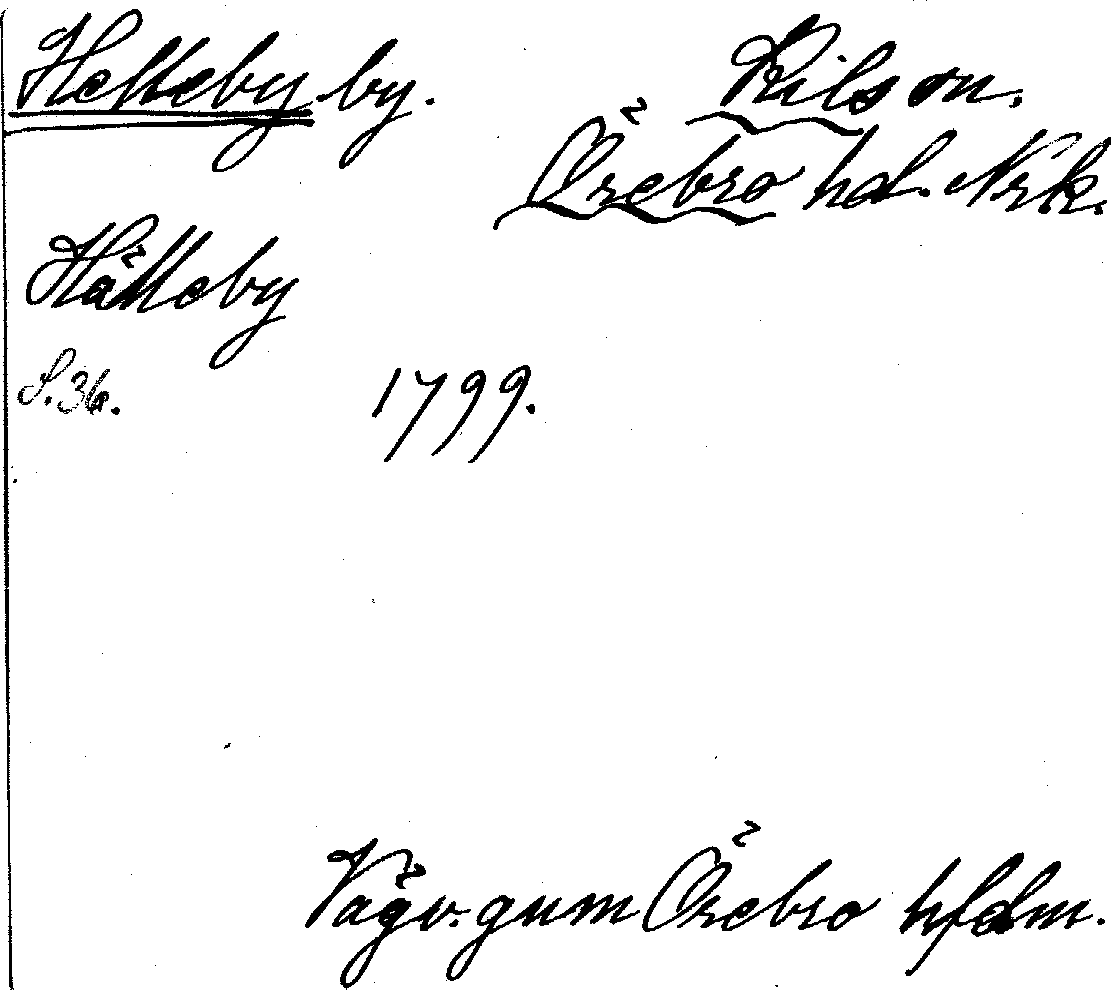 Helleby by. Kils sn.
Örebro hd. Nrk.
Hälleby
S. 36. 1799.
Vägv. gnm Örebro hfdm.